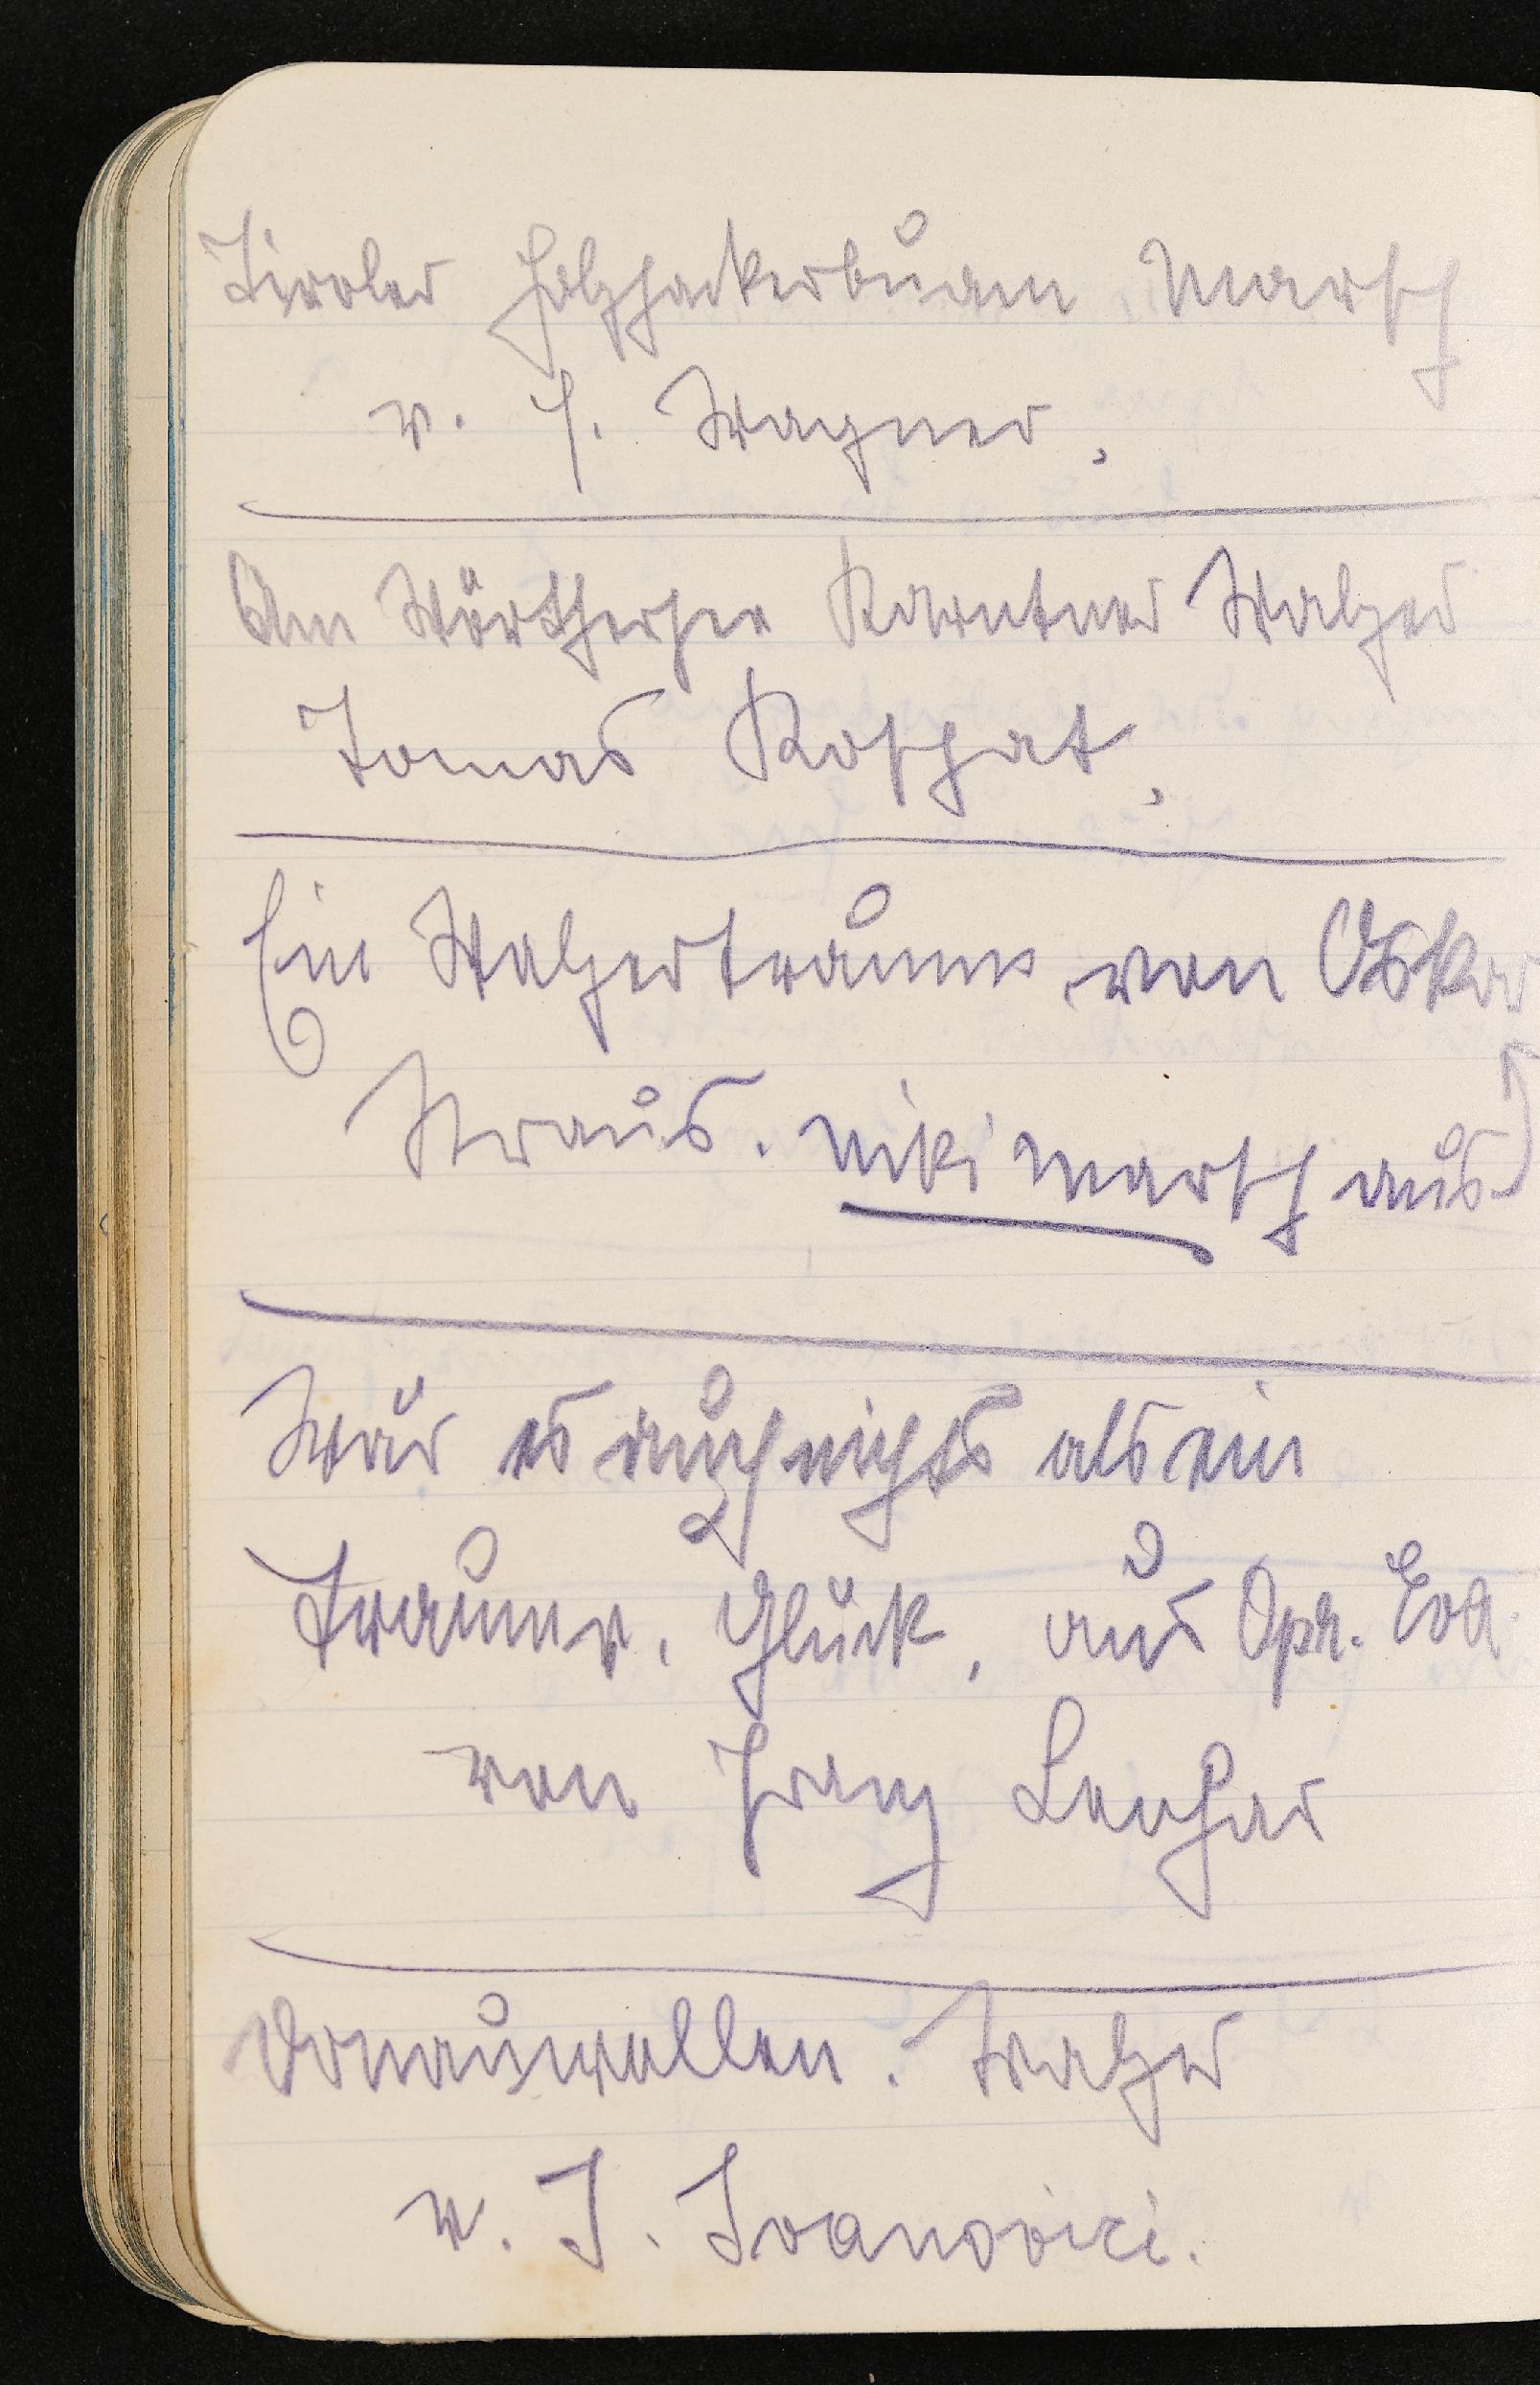 Tiroler Holzhackerbuam, Marsch
v. J. Wagner.
Am Wörthersee Karntner Walzer
Tomas Koschat.
Ein Walzertraum von Oskar
Straus. Niki Marsch aus
Wär es auch nichts als ein
Traum v. Glück, aus Opr. Eva.
von Franz Lenhar
Donauwellen. Walzer
v. J. Ivanovici.